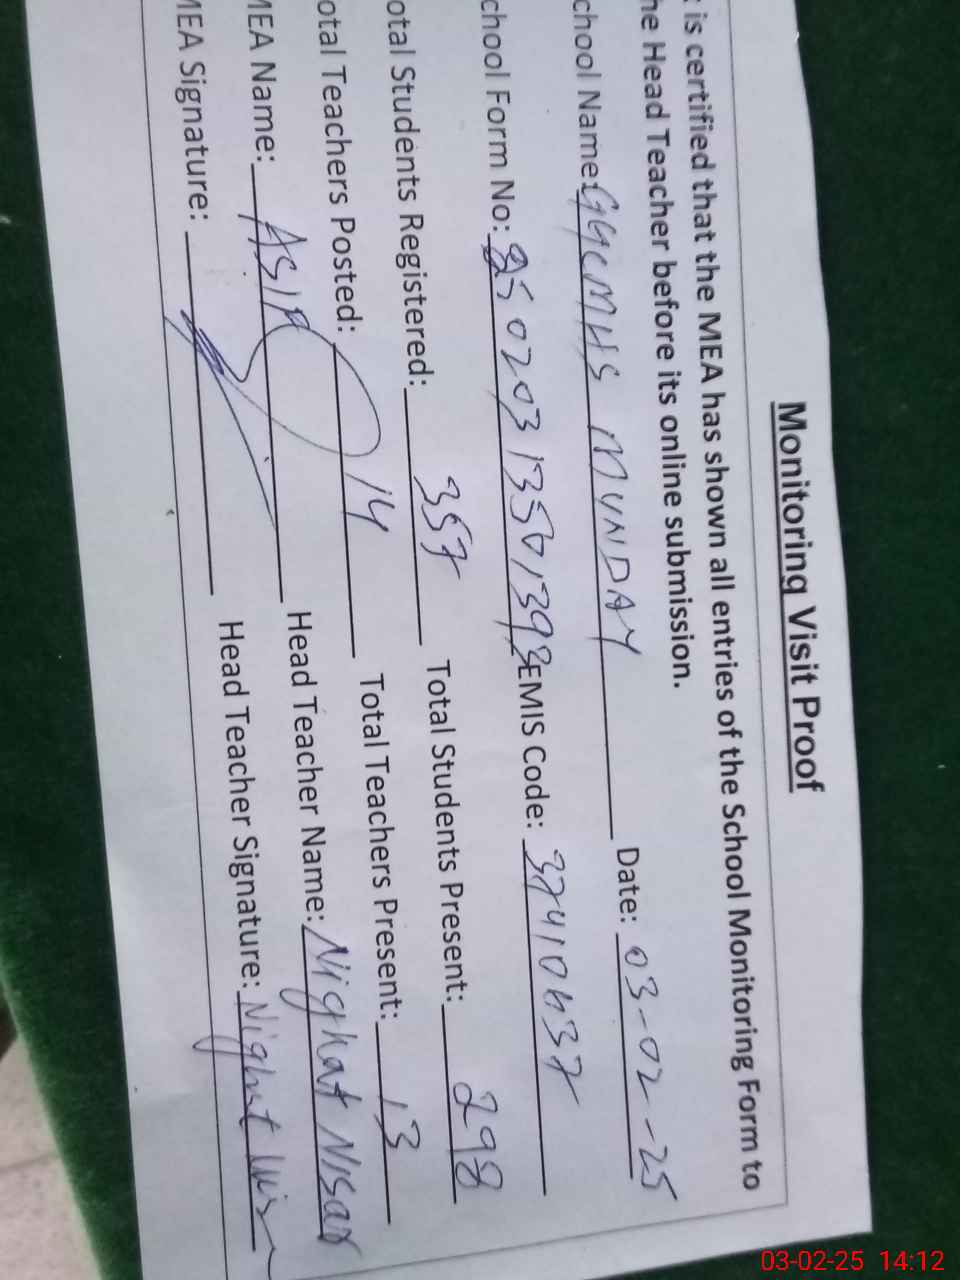 Monitoring Visit Proof
t is certified that the MEA has shown all entries of the School Monitoring Form to
he Head Teacher before its online submission.
chool Name: GGCMHS MUNDAY Date: 03-02-25
chool Form No: EMIS Code: 37410437
otal Students Registered: 357 Total Students Present: 298
otal Teachers Posted: 14 Total Teachers Present: 13
MEA Name: ASIF Head Teacher Name: Nighat Nisar
MEA Signature: Head Teacher Signature: Nighat
03-02-25 14:12